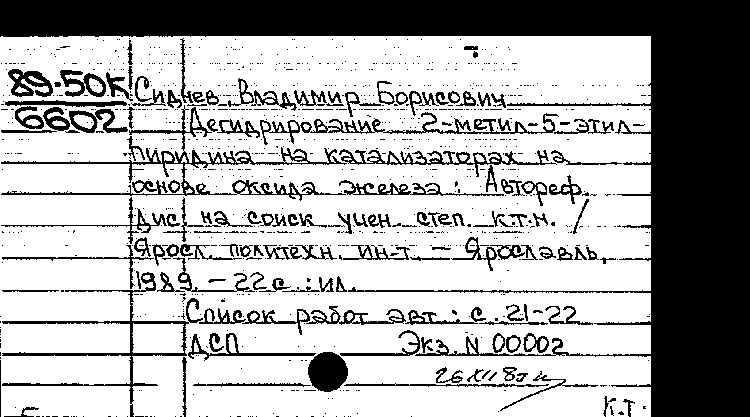 89-50К
6602
Сиднев, Владимир Борисович
Дегидрирование 2-метил-5-этил-
пиридина на катализаторах на
основе оксида железа: Автореф.
дис. на соиск учен. степ. к.т.н. /
Яросл. политехн. ин-т. – Ярославль,
1989. – 22 с.: ил.
Список работ авт.: с. 21-22
ДСП Экз. N 00002
К.Т.